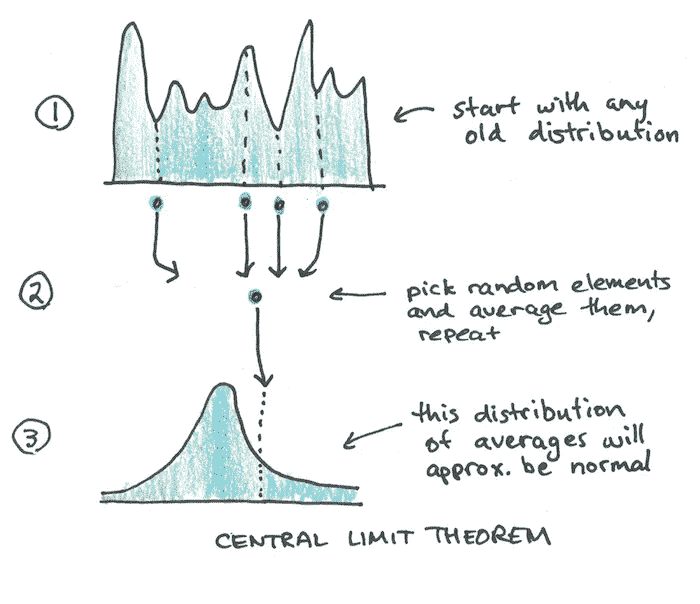 1
start with any
old distribution
2
pick random elements
and average them,
repeat
3
this distribution
of averages will
approx. be normal
CENTRAL LIMIT THEOREM